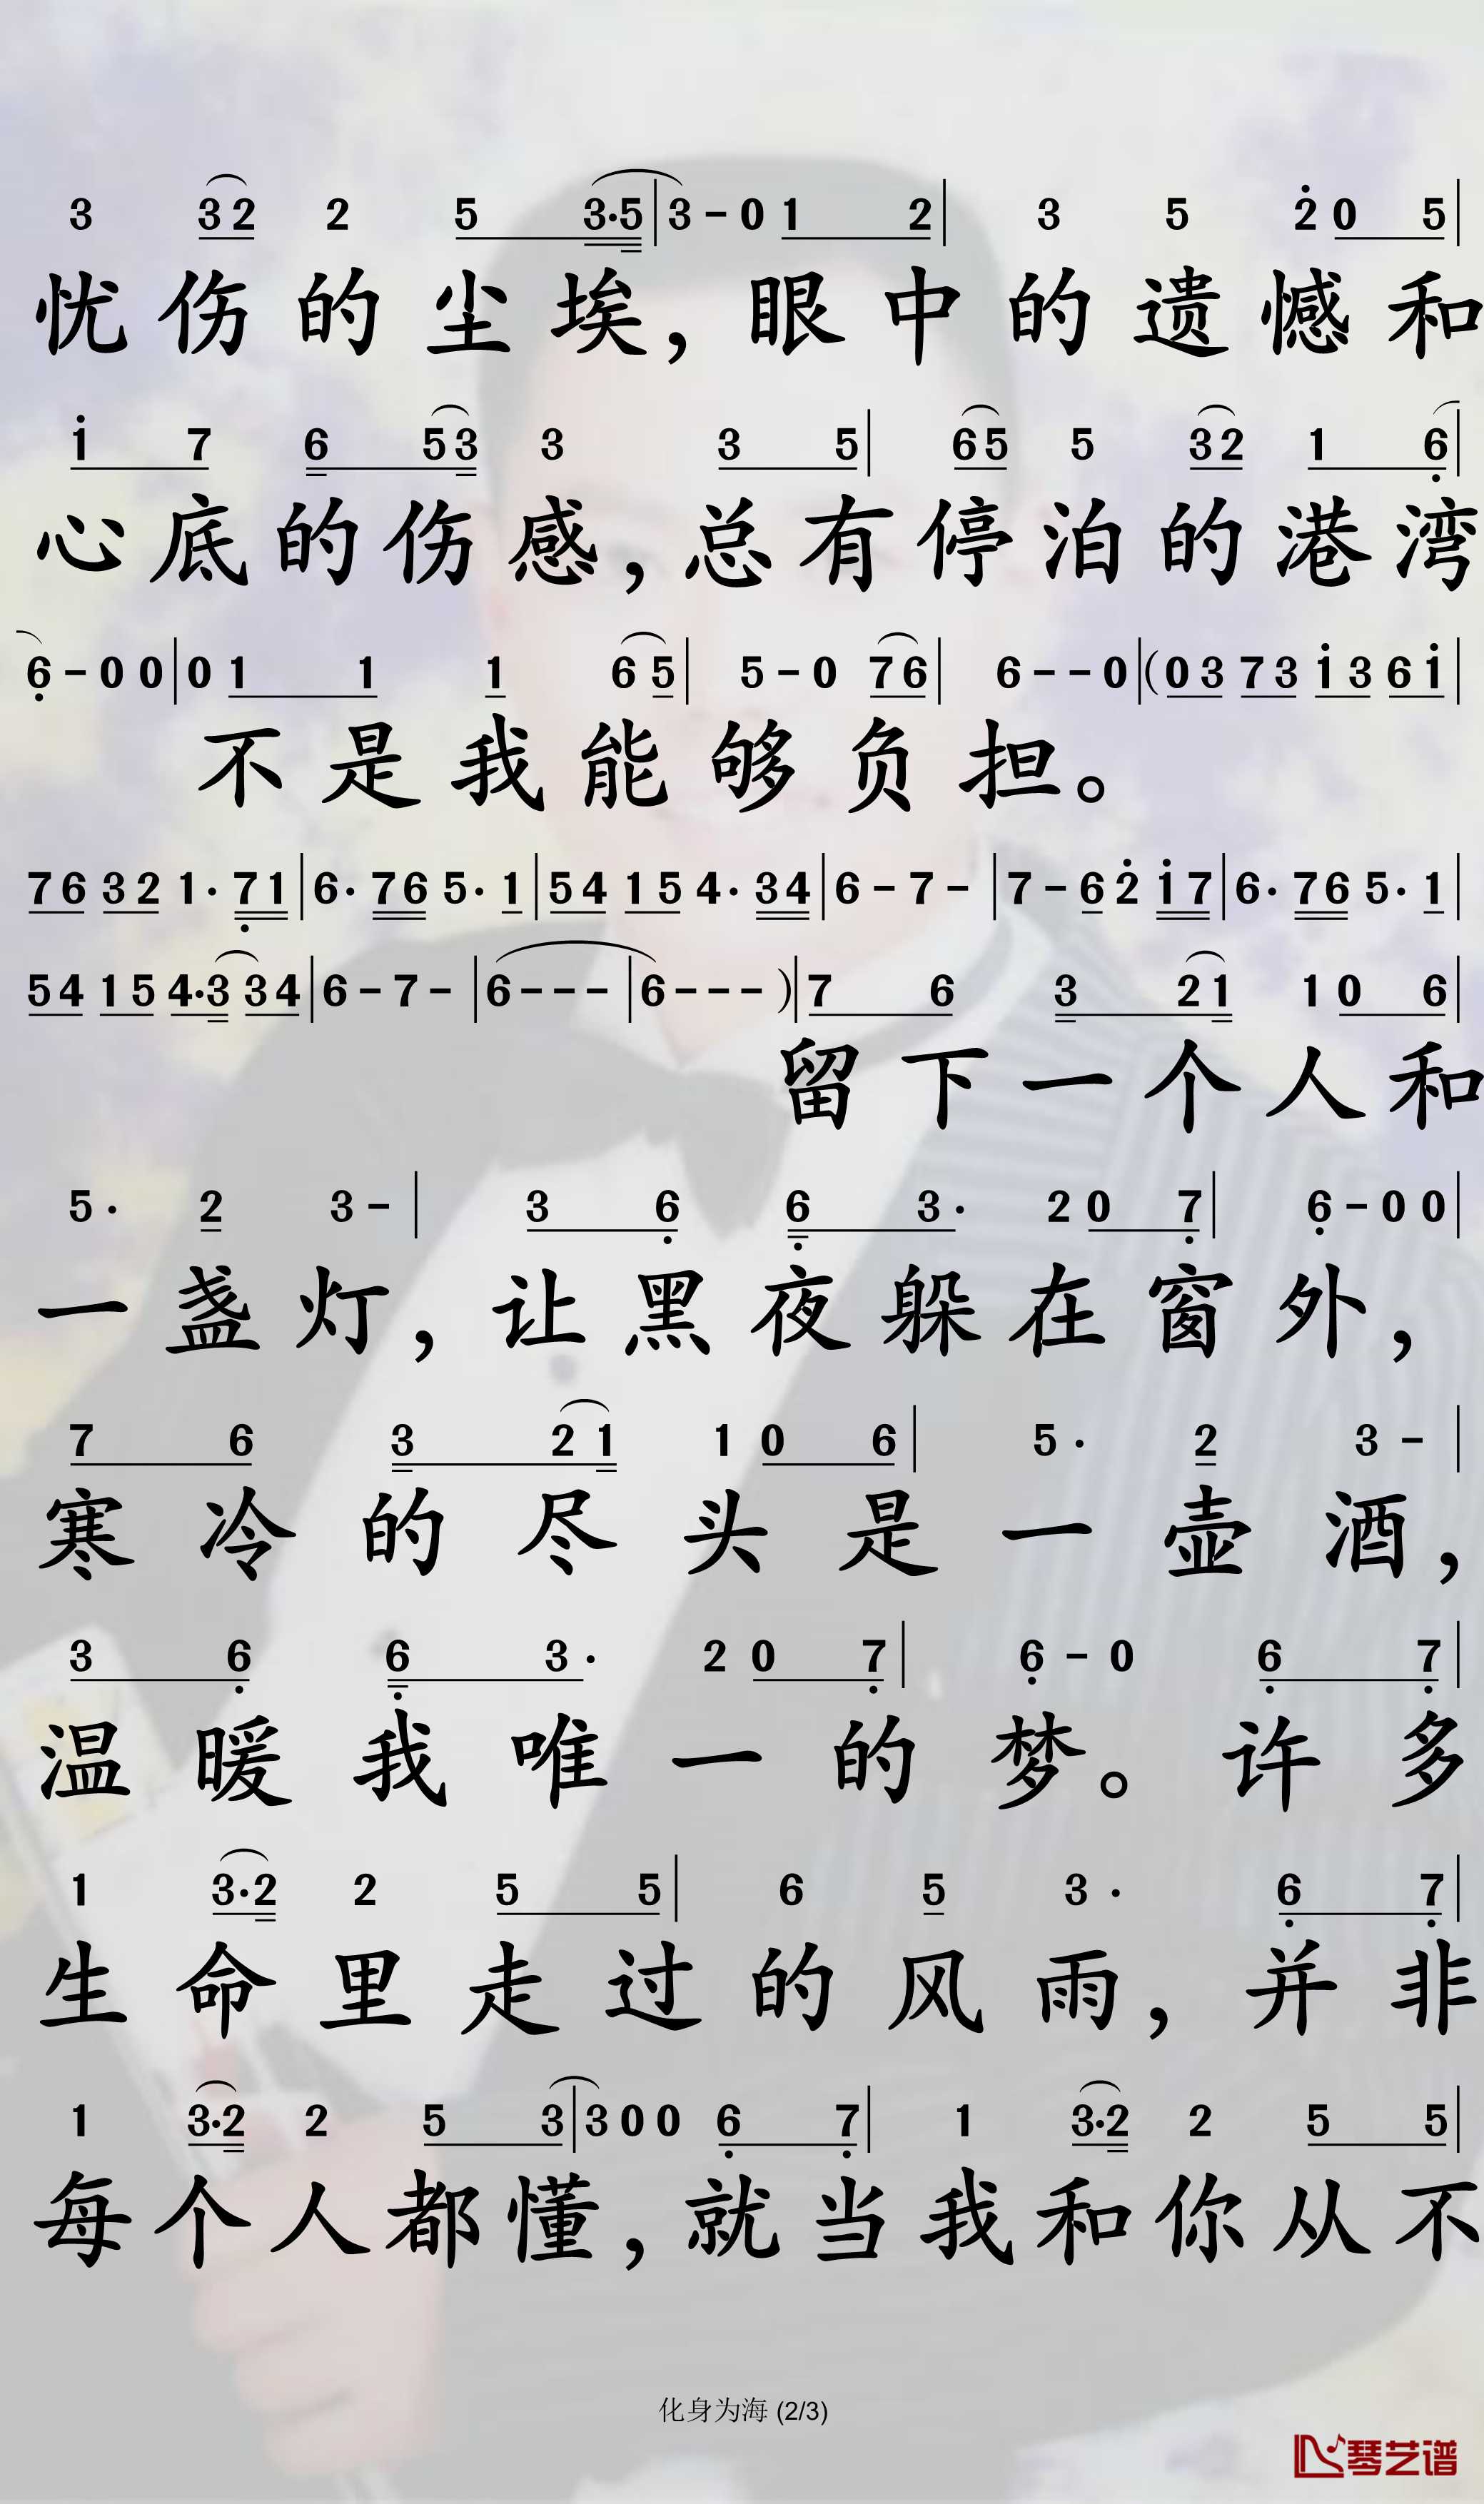 3 3 2 2 5 3·5 | 3 – 0 1 2 | 3 5 2̇ 0 5 |
忧伤的尘埃，眼中的遗憾和
1̇ 7 6 5 3 3 3 5 | 6 5 5 3 2 1 6̣ |
心底的伤感，总有停泊的港湾
6̣ – 0 0 | 0 1 1 1 6 5 | 5 – 0 7 6 | 6 – – 0 | ( 0 3 7 3 1̇ 3 6 1̇ |
不是我能够负担。
7 6 3 2 1· 7̣ 1 | 6· 7 6 5· 1 | 5 4 1 5 4· 3 4 | 6 – 7 – | 7 – 6 2̇ 1̇ 7 | 6· 7 6 5· 1 |
5 4 1 5 4·3 3 4 | 6 – 7 – | 6 – – – | 6 – – – ) | 7 6 3 2 1 1 0 6 |
留下一个人和
5· 2 3 – | 3 6̣ 6̣ 3· 2 0 7̣ | 6̣ – 0 0 |
一盏灯，让黑夜躲在窗外，
7 6 3 2 1 1 0 6 | 5· 2 3 – |
寒冷的尽头是一壶酒，
3 6̣ 6̣ 3· 2 0 7̣ | 6̣ – 0 6̣ 7̣ |
温暖我唯一的梦。许多
1 3·2 2 5 5 | 6 5 3· 6̣ 7̣ |
生命里走过的风雨，并非
1 3·2 2 5 3 | 3 0 0 6̣ 7̣ | 1 3·2 2 5 5 |
每个人都懂，就当我和你从不
化身为海 (2/3)
琴艺谱